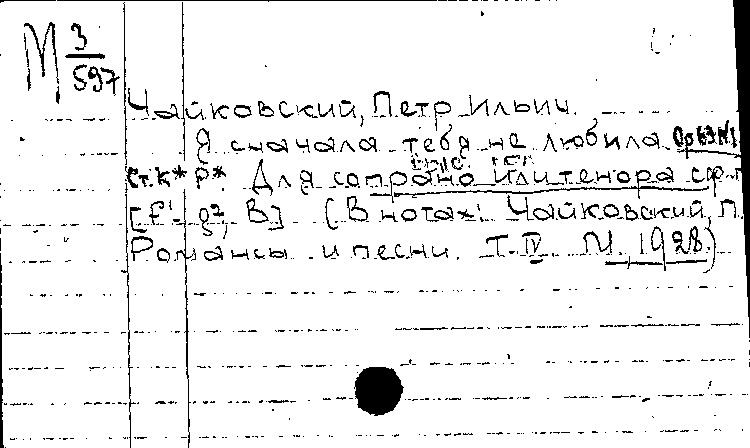 М 3/597
Чайковский, Петр Ильич.
Я сначала тебя не любила. Op 63 N1
Ст. К* Р*. Для сопрано или тенора с ф.п.
[f¹-g², B] (В нотах: Чайковский, П.
Романсы и песни. Т. IV. М., 1928.)